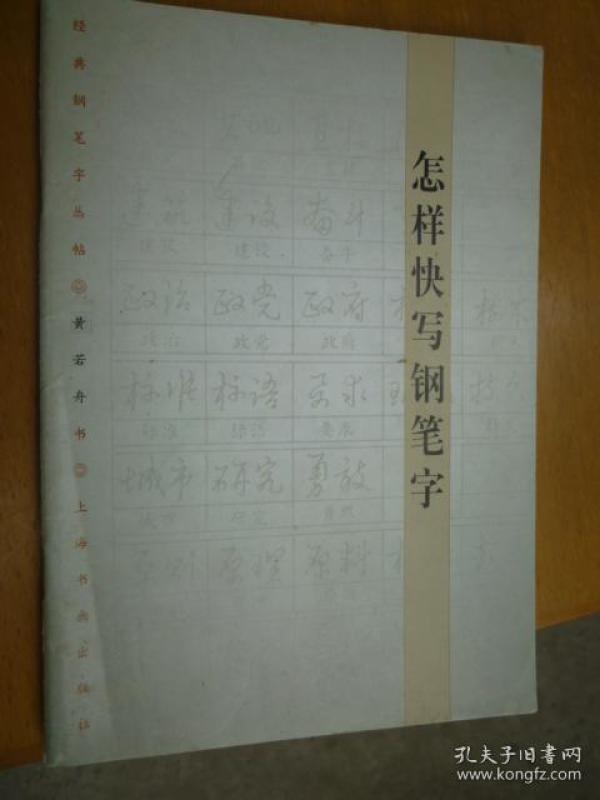 怎样快写钢笔字
经典钢笔字丛帖 黄若舟书 上海书画出版社
建设 奋斗
建设 奋斗
政治 政党 政府
政治 政党 政府
标准 标语 要求
标准 标语 要求
城市 研究 勇敢
城市 研究 勇敢
原则 原理 原料
孔夫子旧书网
www.kongfz.com